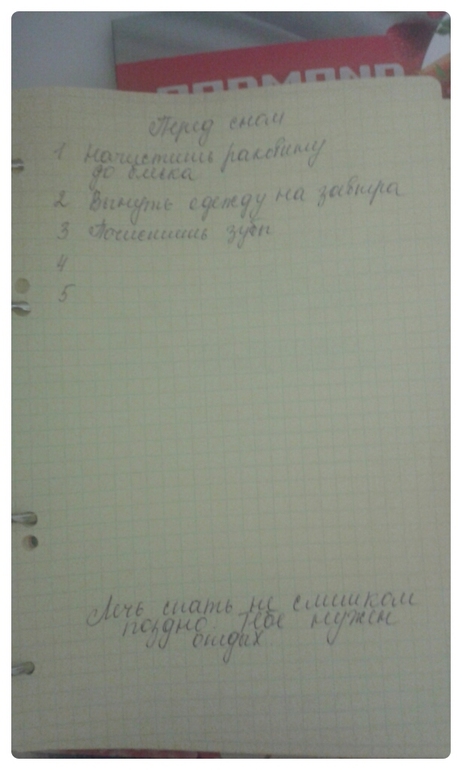 REDMOND
Перед сном
1 Начистить раковину
до блеска
2 Вынуть одежду на завтра
3 Почистить зубы
4
5
Лечь спать не слишком
поздно. Тебе нужен
отдых